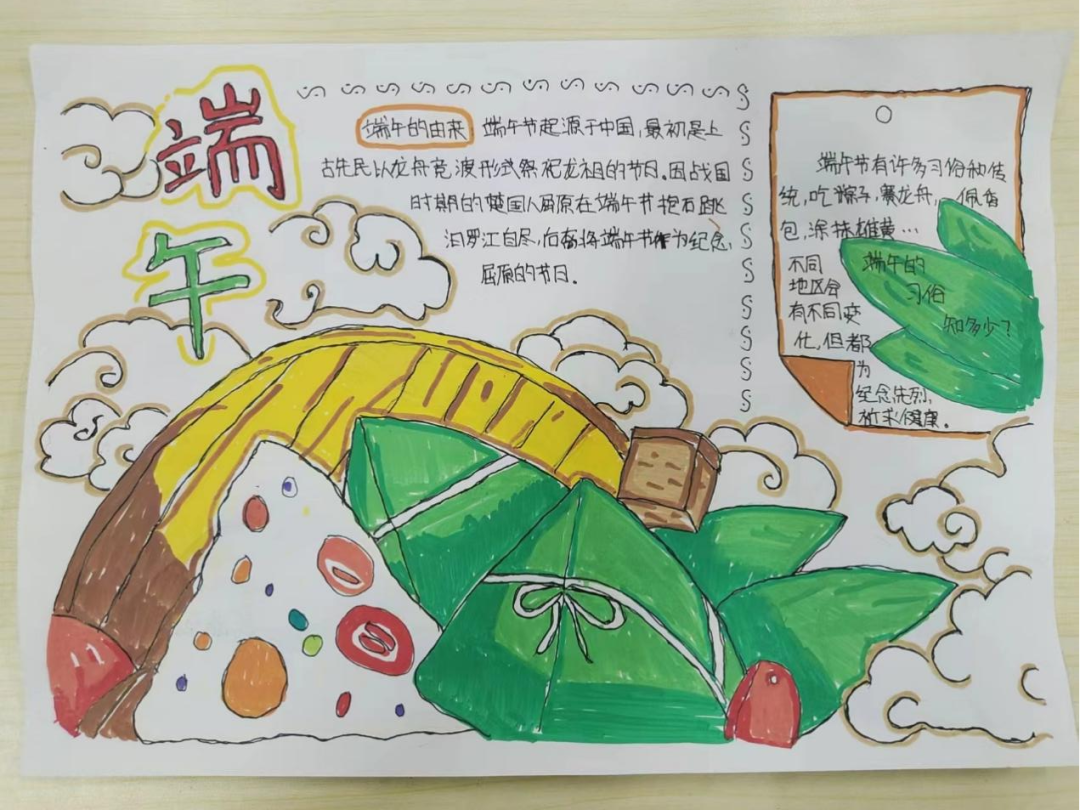 端午
端午的由来 端午节起源于中国,最初是上
古先民以龙舟竞渡形式祭祀龙祖的节日。因战国
时期的楚国人屈原在端午节抱石跳
汨罗江自尽,后亦将端午节作为纪念
屈原的节日。
端午节有许多习俗和传
统,吃粽子,赛龙舟,佩香
包,涂抹雄黄…
不同
地区会
有不同变
化,但都
为
纪念先烈,
祈求健康。
端午的
习俗
知多少?